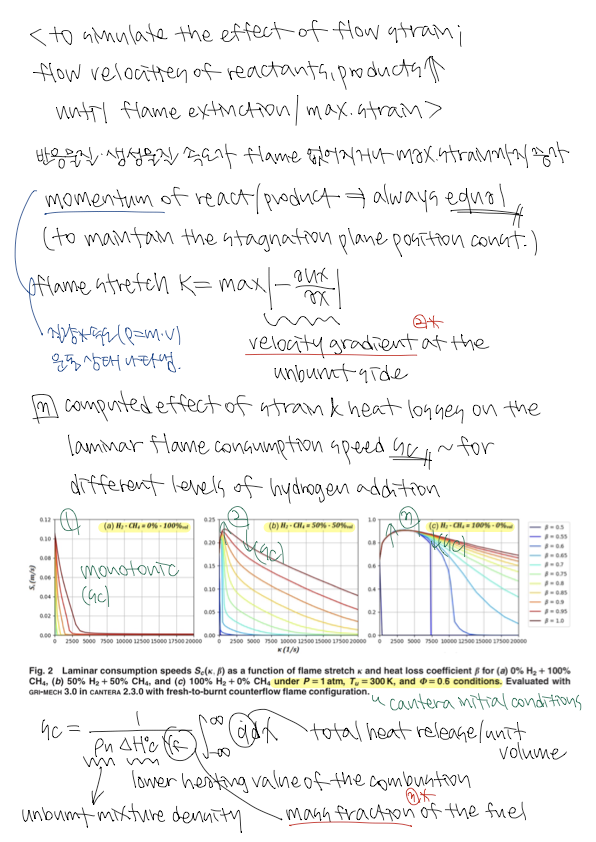 < to simulate the effect of flow strain;
flow velocities of reactants, products ↑
until flame extinction / max. strain >
반응물질·생성물질 속도가 flame 없어지거나 max.strain까지 증가
momentum of react/product ⇒ always equal
(to maintain the stagnation plane position const.)
flame stretch K = max |-∂ux/∂x|
질량x속도(P=m·v)
운동 상태 나타냄.
velocity gradient at the
unburnt side
computed effect of strain & heat losses on the
laminar flame consumption speed Sc ~ for
different levels of hydrogen addition
① ②
(a) H2 - CH4 = 0% - 100%vol (b) H2 - CH4 = 50% - 50%vol (c) H2 - CH4 = 100% - 0%vol
monotonic
(Sc)
(Sc)
(Sc)
Sc (m/s)
0.12
0.10
0.08
0.06
0.04
0.02
0.00
0 2500 5000 7500 10000 12500 15000 17500 20000
0.25
0.20
0.15
0.10
0.05
0.00
0 2500 5000 7500 10000 12500 15000 17500 20000
κ (1/s)
1.0
0.8
0.6
0.4
0.2
0.0
0 2500 5000 7500 10000 12500 15000 17500 20000
β = 0.5
β = 0.55
β = 0.6
β = 0.65
β = 0.7
β = 0.75
β = 0.8
β = 0.85
β = 0.9
β = 0.95
β = 1.0
Fig. 2 Laminar consumption speeds Sc(κ, β) as a function of flame stretch κ and heat loss coefficient β for (a) 0% H2 + 100%
CH4, (b) 50% H2 + 50% CH4, and (c) 100% H2 + 0% CH4 under P = 1 atm, Tu = 300 K, and Φ = 0.6 conditions. Evaluated with
GRI-MECH 3.0 in CANTERA 2.3.0 with fresh-to-burnt counterflow flame configuration.
cantera initial conditions
Sc = 1 / (ρu ΔH°c Yf) ∫-∞ ∞ q̇ dx
total heat release/unit
volume
lower heating value of the combustion
unburnt mixture density
mass fraction of the fuel